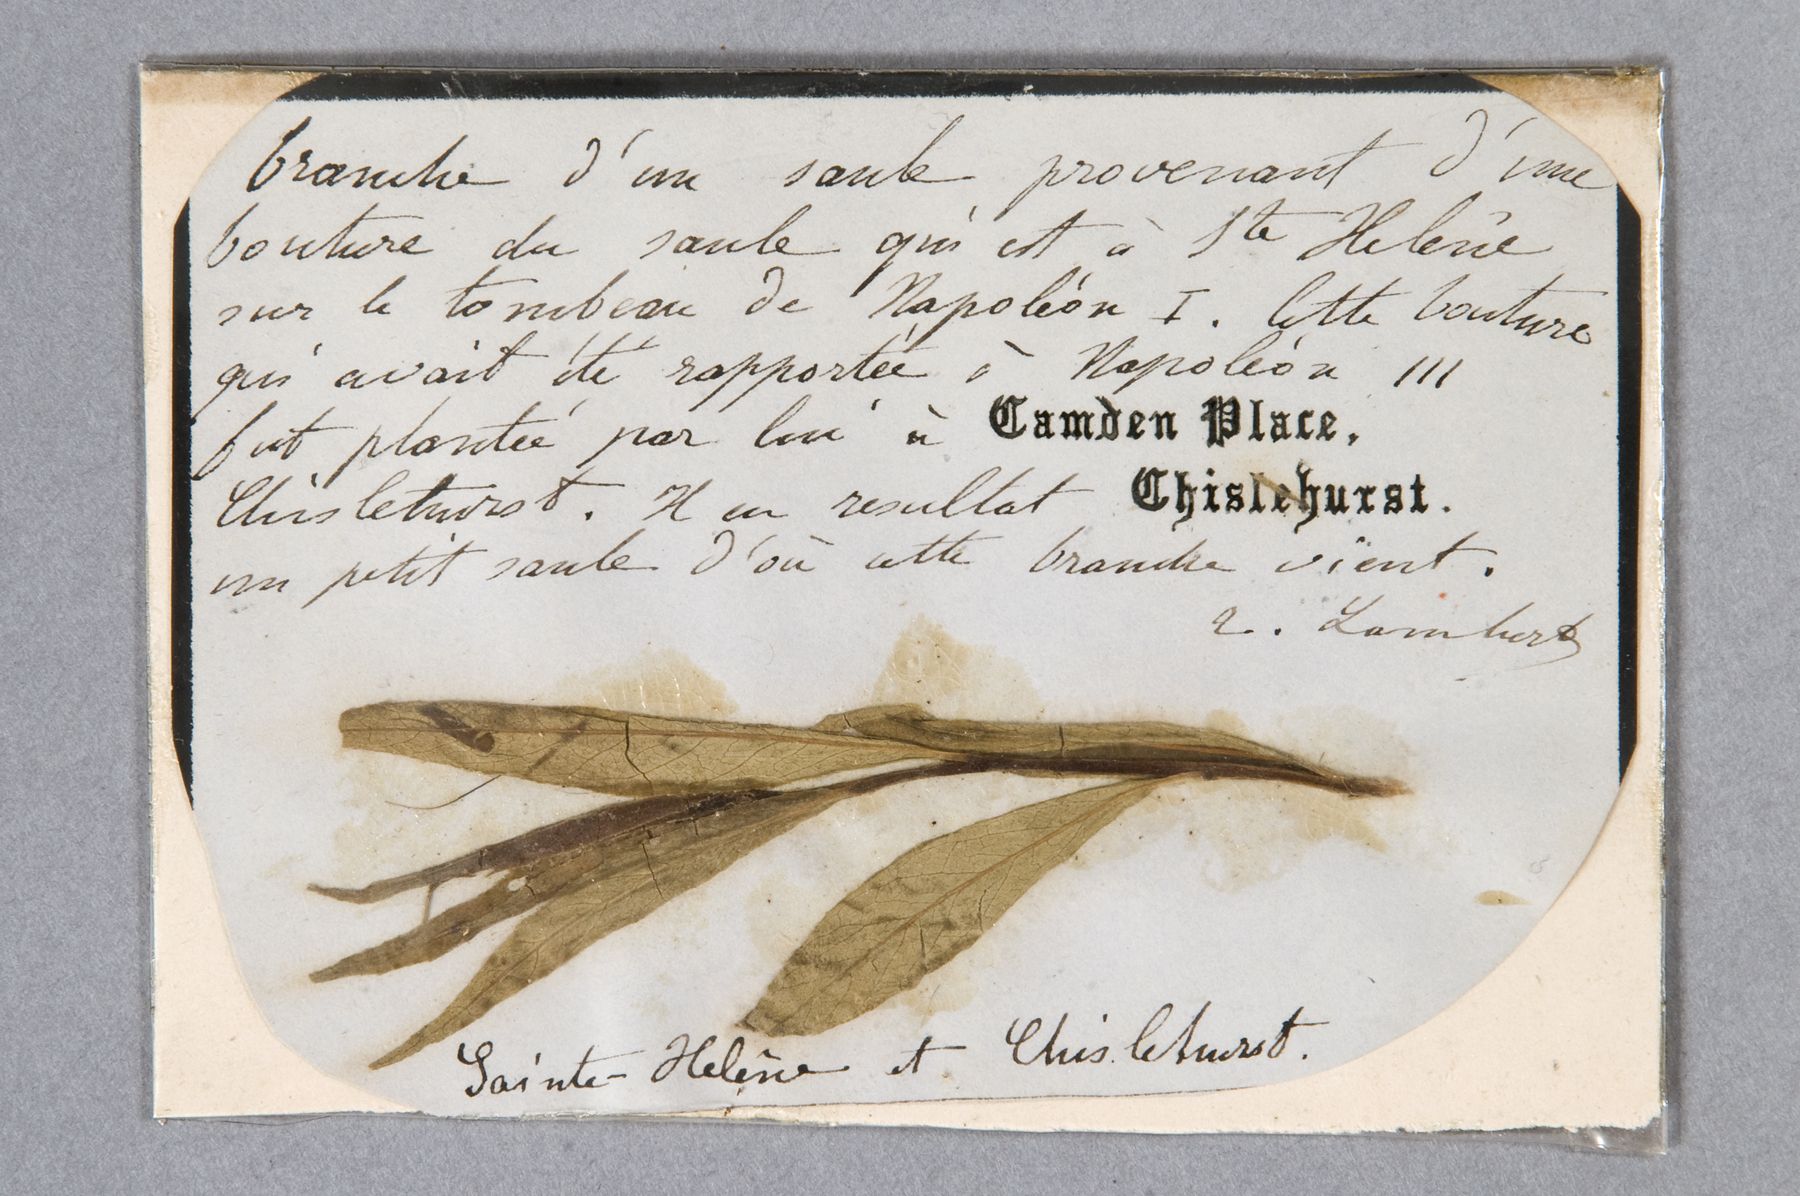 branche d'un saule provenant d'une
bouture du saule qui est à Ste Helène
sur le tombeau de Napoléon I. Cette bouture
qui avait été rapportée à Napoléon III
fut plantée par lui à Camden Place.
Chislehurst. Il en resultat Chislehurst.
un petit saule d'où cette branche vient.
Lambert
Sainte-Helène et Chislehurst.